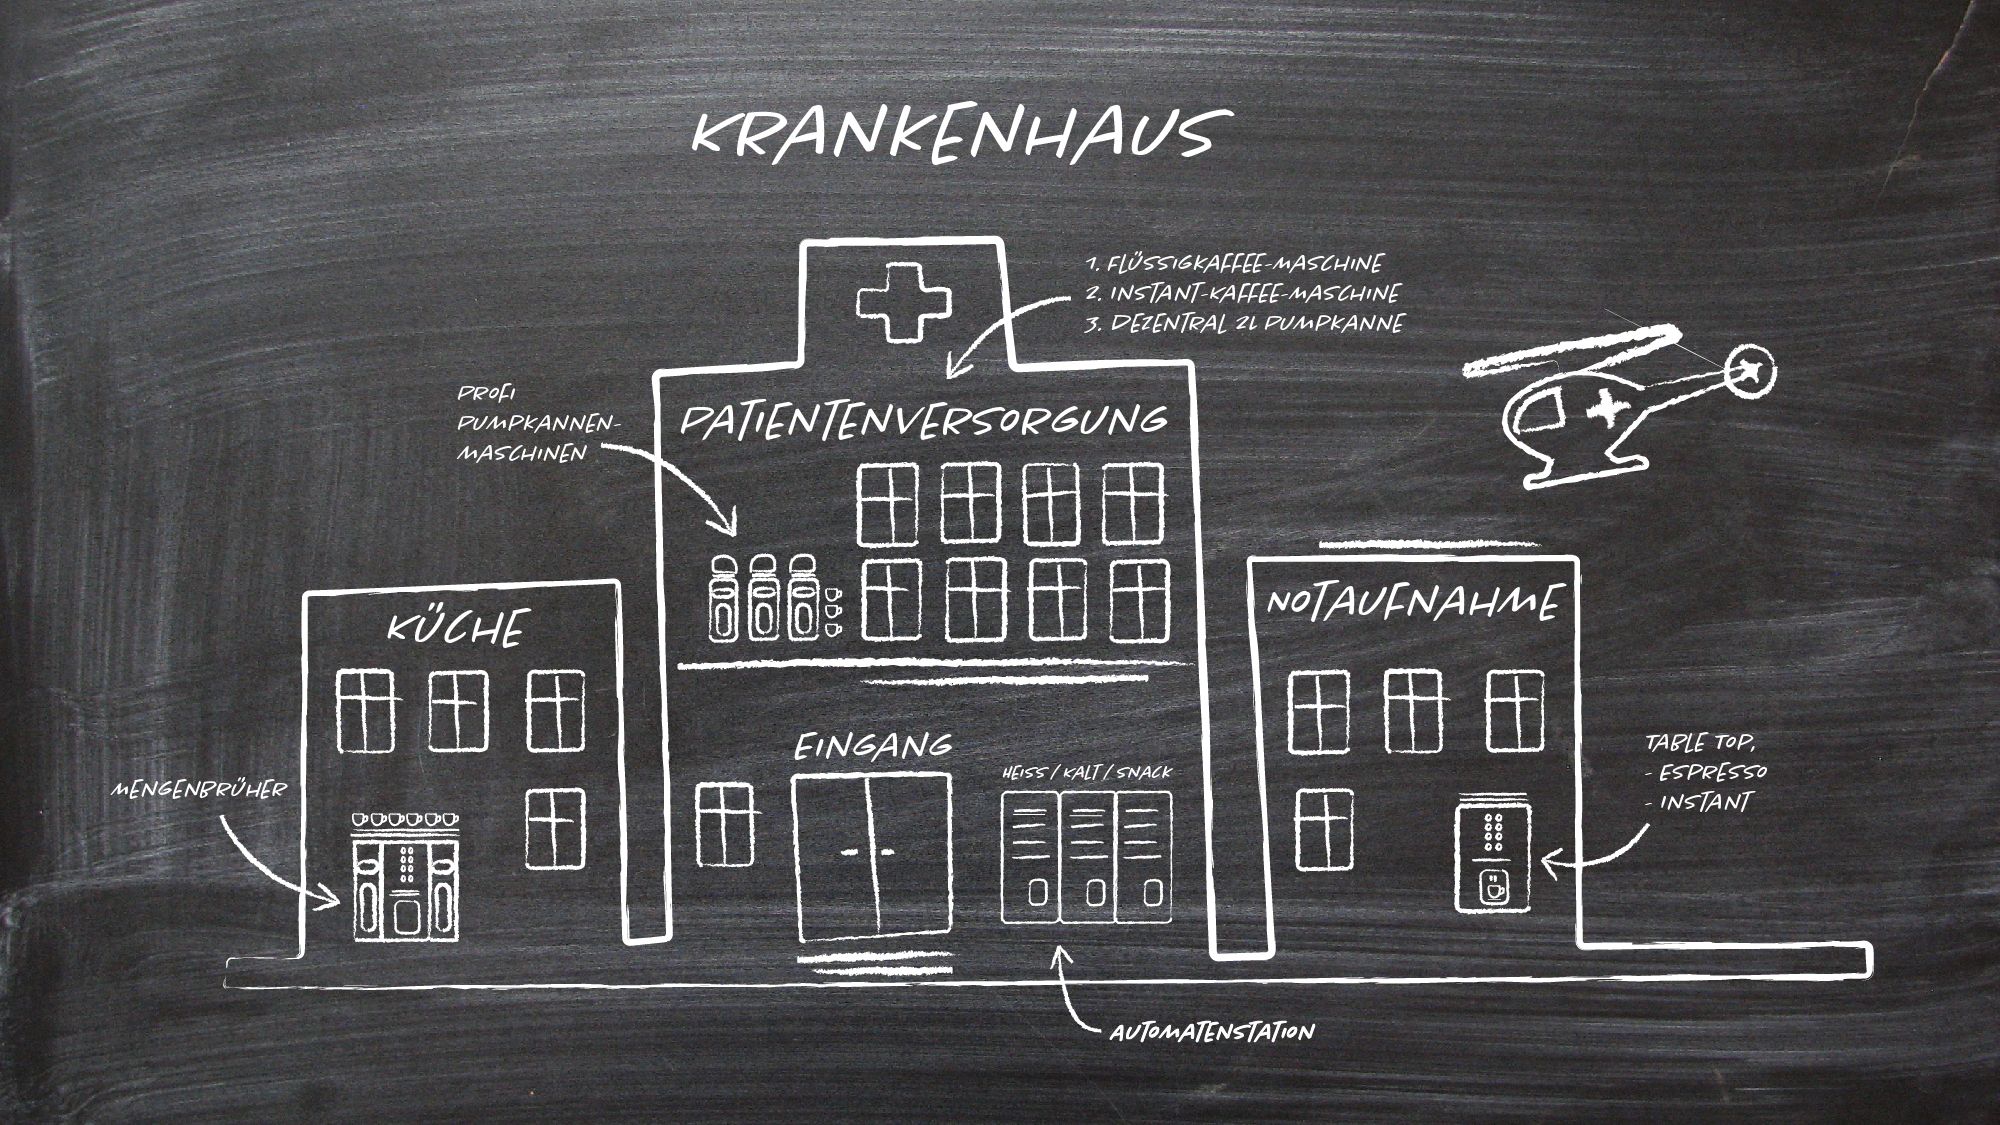 KRANKENHAUS
1. FLÜSSIGKAFFEE-MASCHINE
2. INSTANT-KAFFEE-MASCHINE
3. DEZENTRAL 2L PUMPKANNE
PROFI
PUMPKANNEN-
MASCHINEN
PATIENTENVERSORGUNG
KÜCHE
NOTAUFNAHME
EINGANG
HEISS / KALT / SNACK
MENGENBRÜHER
TABLE TOP,
- ESPRESSO
- INSTANT
AUTOMATENSTATION